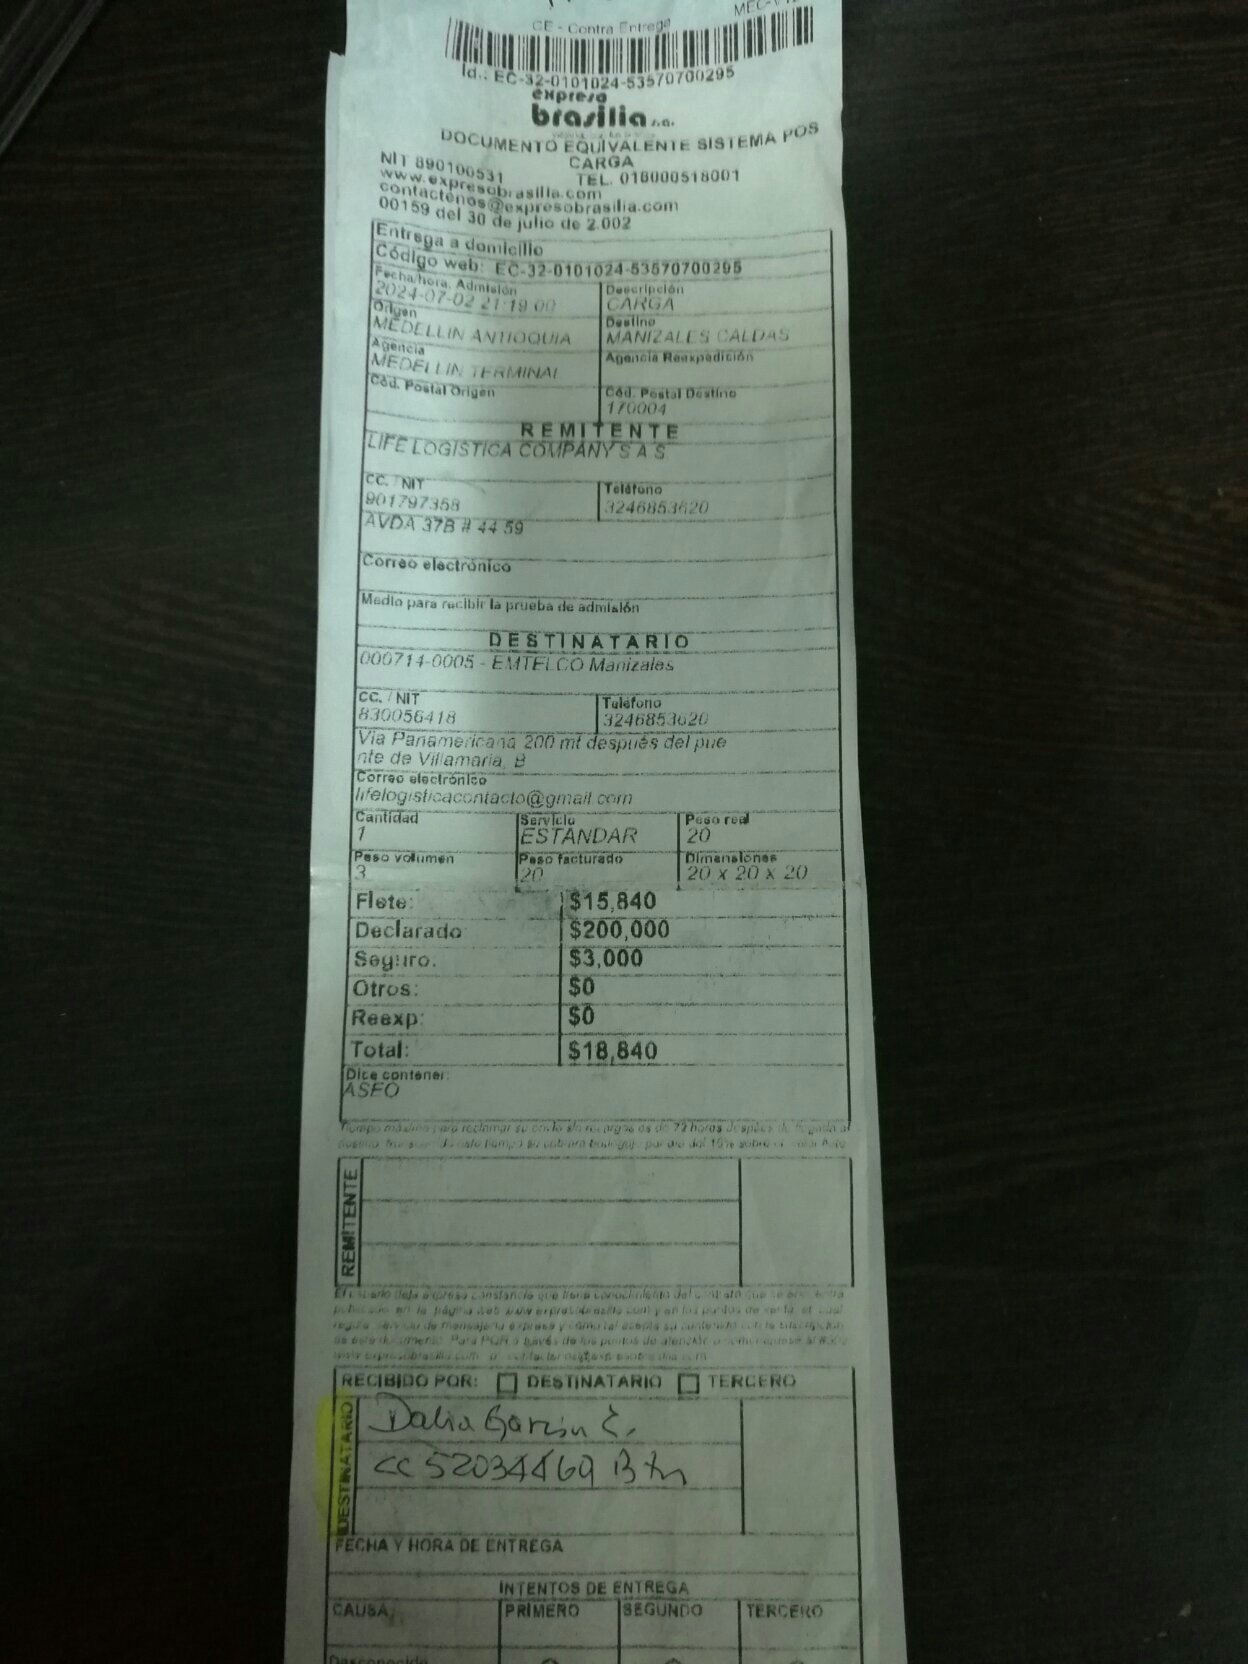 CE - Contra Entrega
Id.: EC-32-0101024-53570700295
expreso
brasilia s.a.
DOCUMENTO EQUIVALENTE SISTEMA POS
CARGA
NIT 890100531 TEL. 018000518001
www.expresobrasilia.com
contactenos@expresobrasilia.com
00159 del 30 de julio de 2.002
Entrega a domicilio
Código web: EC-32-0101024-53570700295
Fecha/hora. Admisión Descripción
2024-07-02 21:19:00 CARGA
Origen Destino
MEDELLIN ANTIOQUIA MANIZALES CALDAS
Agencia Agencia Reexpedición
MEDELLIN TERMINAL
Cód. Postal Origen Cód. Postal Destino
170004
REMITENTE
LIFE LOGISTICA COMPANY S A S.
CC. / NIT Teléfono
901797358 3246853620
AVDA 37B # 44 59
Correo electrónico
Medio para recibir la prueba de admisión
DESTINATARIO
000714-0005 - EMTELCO Manizales
CC. / NIT Teléfono
830056418 3246853620
Via Panamericana 200 mt después del pue
nte de Villamaria, B
Correo electrónico
lifelogisticacontacto@gmail.com
Cantidad Servicio Peso real
1 ESTANDAR 20
Peso volumen Peso facturado Dimensiones
3 20 20 x 20 x 20
Flete: $15,840
Declarado $200,000
Seguro: $3,000
Otros: $0
Reexp: $0
Total: $18,840
Dice contener:
ASEO
Tiempo máximo para reclamar su envío sin recargos es de 72 horas después de llegada al
REMITENTE
El usuario deja expresa constancia que tiene conocimiento del contrato que se encuentra
publicado en la página web www.expresobrasilia.com y en los puntos de venta, el cual
RECIBIDO POR: DESTINATARIO TERCERO
DESTINATARIO
Dalia Garzón E.
CC 52034469 Bta
FECHA Y HORA DE ENTREGA
INTENTOS DE ENTREGA
CAUSA PRIMERO SEGUNDO TERCERO
Desconocido